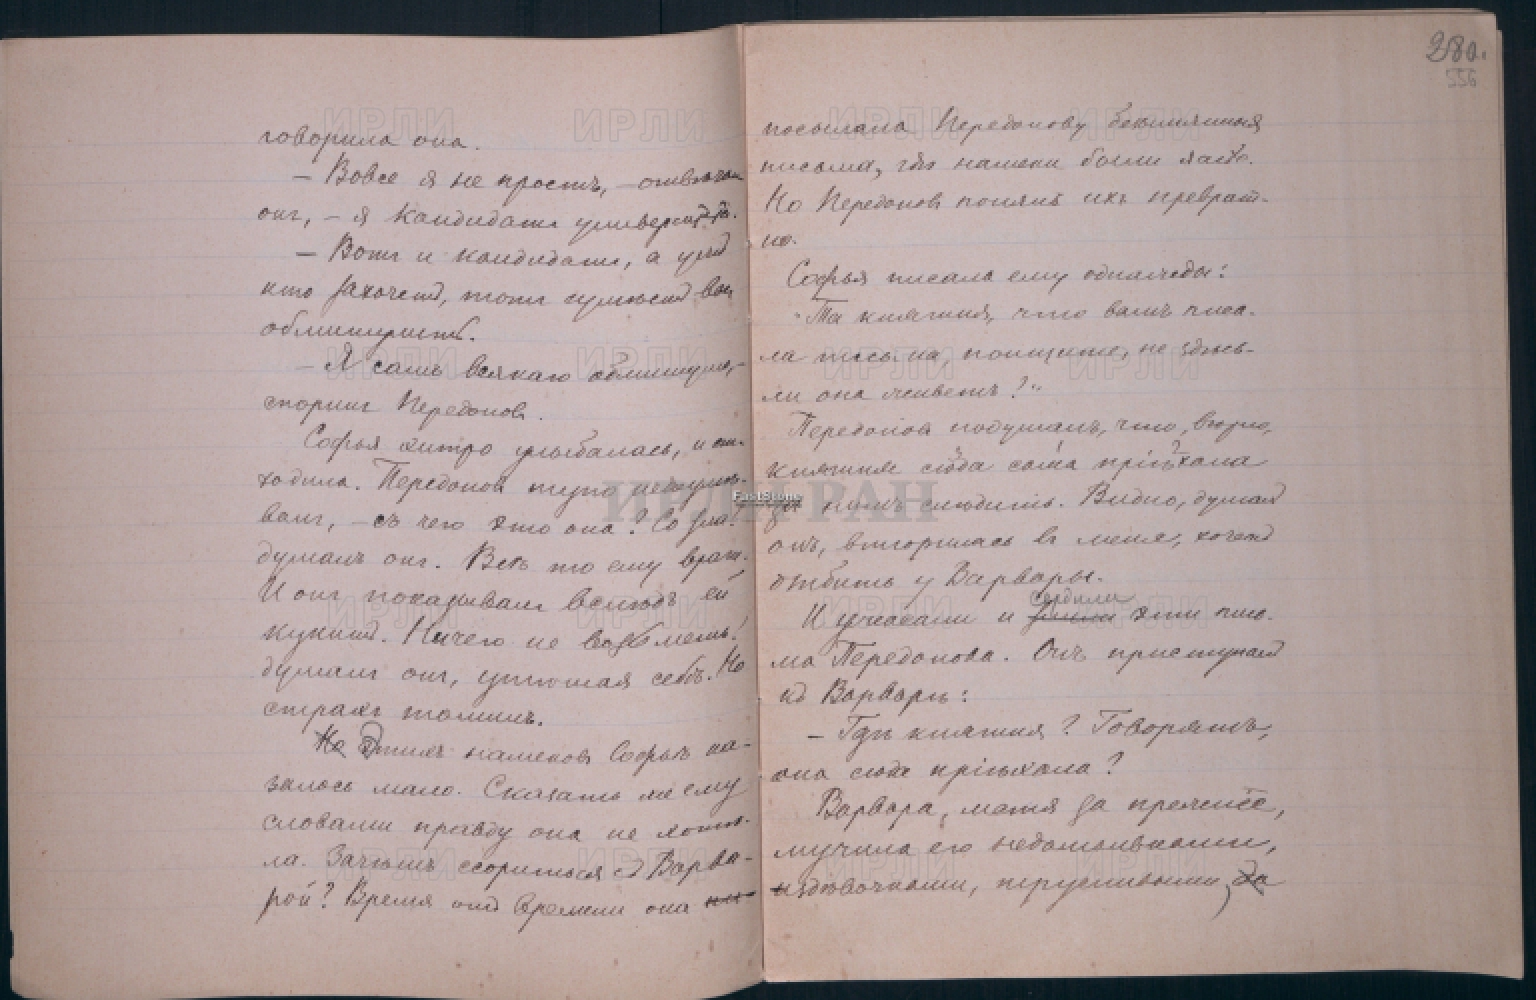 говорила она.
— Вовсе я не простъ, — отвѣчалъ
онъ, — я кандидатъ университета.
— Вотъ и кандидатъ, а ужъ
кто захочетъ, тотъ сумѣетъ васъ
облимонить.
— Я самъ всякаго облимоню, —
спорилъ Передоновъ.
Софья хитро улыбалась, и от-
ходила. Передоновъ тупо недоумѣ-
валъ, — съ чего это она? Со зла!
думалъ онъ. Всѣ-то ему враги.
И онъ показывалъ вслѣдъ ей
кукишъ. Ничего не возьмешь!
думалъ онъ, утѣшая себя. Но
страхъ томилъ.
Но Этихъ намековъ Софьѣ ка-
залось мало. Сказать же ему
словами правду она не хотѣ-
ла. Зачѣмъ ссориться съ Варва-
рой? Время отъ времени она
280.
556
посылала Передонову безымянныя
письма, гдѣ намеки были яснѣе.
Но Передоновъ понялъ ихъ преврат-
но.
Софья писала ему однажды:
"Та княгиня, что вамъ писа-
ла письма, поищите, не здѣсь-
ли она живетъ?"
Передоновъ подумалъ, что, вѣрно,
княгиня сюда сама пріѣхала
за нимъ слѣдить. Видно, думалъ
онъ, втюрилась въ меня, хочетъ
отбить у Варвары.
И ужасали и сердили эти пись-
ма Передонова. Онъ приступалъ
къ Варварѣ:
— Гдѣ княгиня? Говорятъ,
она сюда пріѣхала?
Варвара, мстя за прежнее,
мучила его недомолвками,
издѣвочками, трусливыми, да
ИРЛИ РАН
ИРЛИ
FastStone